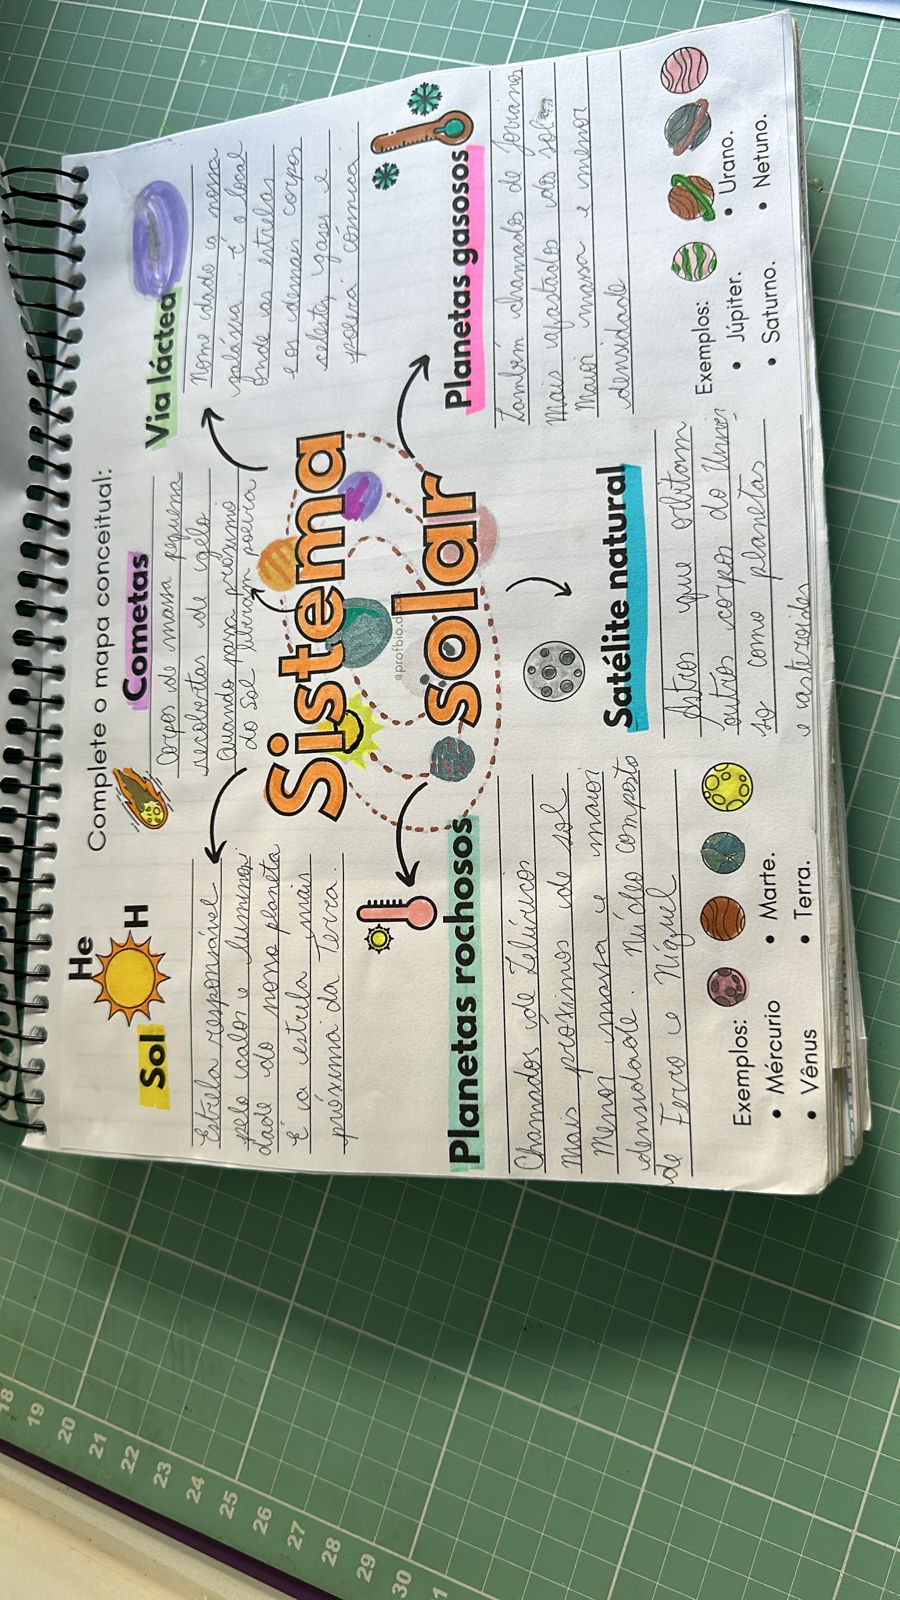 Complete o mapa conceitual:
Sol
He
H
Estrela responsável
pelo calor e luminosi
dade do nosso planeta
É a estrela mais
próxima da Terra.
Cometas
Corpos de massa pequena
recobertas de igelo
Quando passa próximo
do sol liberam poeira
Via láctea
Nome dado a nossa
galáxia. é o local
onde as estrelas
e os demais corpos
celeste, gases e
poeira cósmica
Sistema
solar
@profbio.d
Planetas rochosos
Chamados de Telúricos
Mais próximos de sol
Menor massa e maior
densidade. Núcleo composto
de Ferro e Níquel
Exemplos:
• Mércurio
• Vênus
• Marte.
• Terra.
Satélite natural
Astros que orbitam
outros corpos do Univer
so como planetas
e asteroides
Planetas gasosos
Também chamados de Jovianos
Mais afastados do sol
Maior massa e menor
densidade
Exemplos:
• Júpiter.
• Saturno.
• Urano.
• Netuno.
18
19
20
21
22
23
24
25
26
27
28
29
30